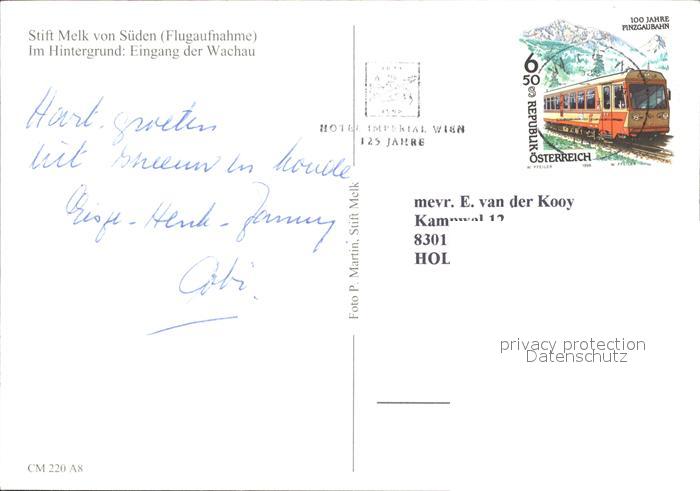 Stift Melk von Süden (Flugaufnahme)
Im Hintergrund: Eingang der Wachau
100 JAHRE
PINZGAUBAHN
6
50
REPUBLIK
ÖSTERREICH
W. PFEILER 1998 W. PFEILER
HOTEL IMPERIAL WIEN
125 JAHRE
Hart. groeten
uit sneeuw en koude
Henk -
Cobi.
Foto P. Martin, Stift Melk
mevr. E. van der Kooy
8301
HOL
privacy protection
Datenschutz
CM 220 A8